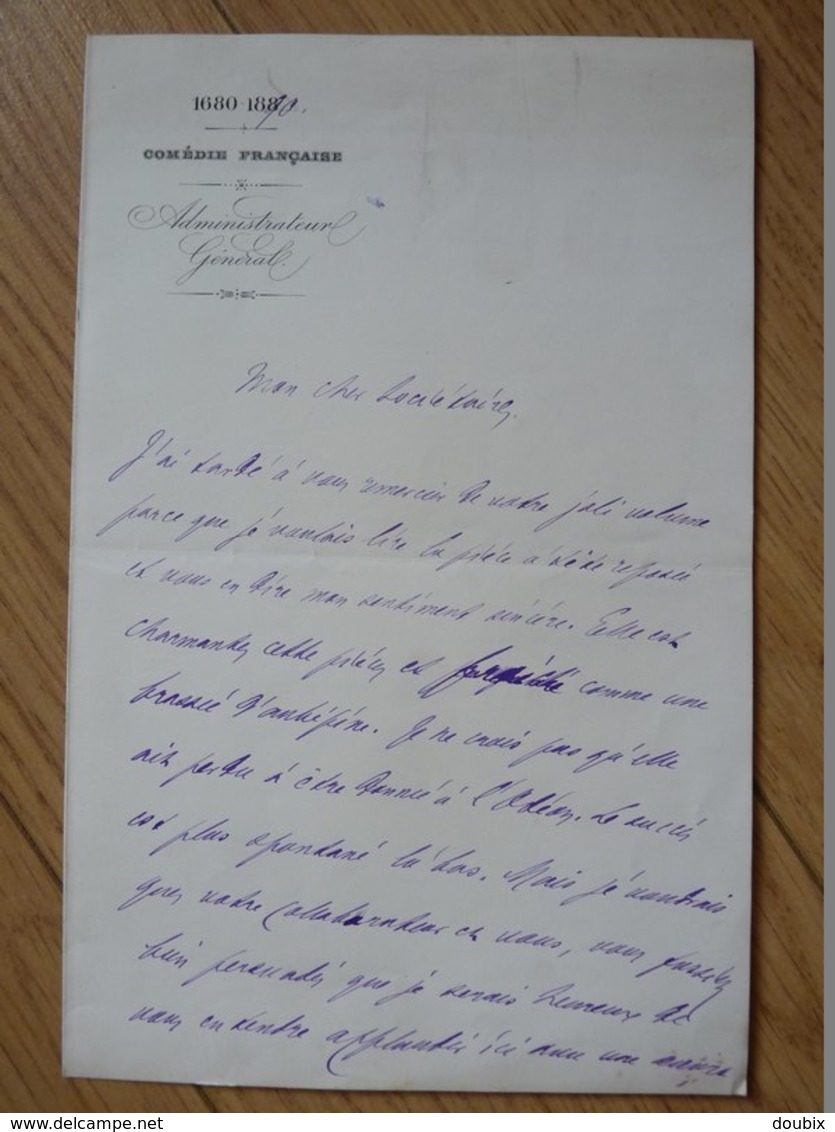 1680-1890.
COMÉDIE FRANÇAISE
Administrateur
Général.
Mon cher Sociétaire,
J'ai tardé à vous remercier de votre joli volume
parce que je voulais lire la pièce à tête reposée
et vous en dire mon sentiment sincère. Elle est
charmante, cette pièce, et comme une
brassée d'aubépine. Je ne crois pas qu'elle
ait perdu à être donnée à l'Odéon. Le succès
est plus spontané là-bas. Mais je voudrais
que, votre collaborateur et vous, vous fussiez
bien persuadés que je serais heureux de
vous entendre applaudir ici avec une œuvre
delcampe.net
doubix